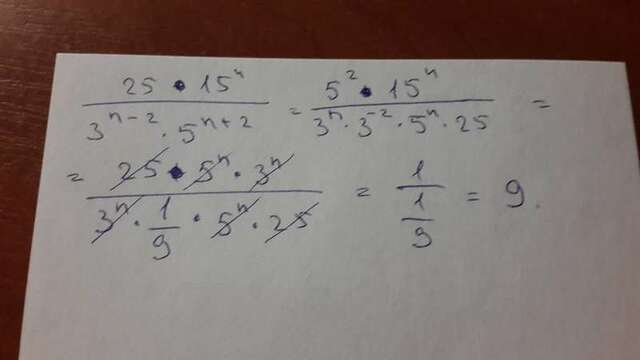 25 • 15ⁿ / 3ⁿ⁻² · 5ⁿ⁺² = 5² • 15ⁿ / 3ⁿ · 3⁻² · 5ⁿ · 25 =
= 25 • 5ⁿ · 3ⁿ / 3ⁿ · 1/9 · 5ⁿ · 25 = 1 / 1/9 = 9.